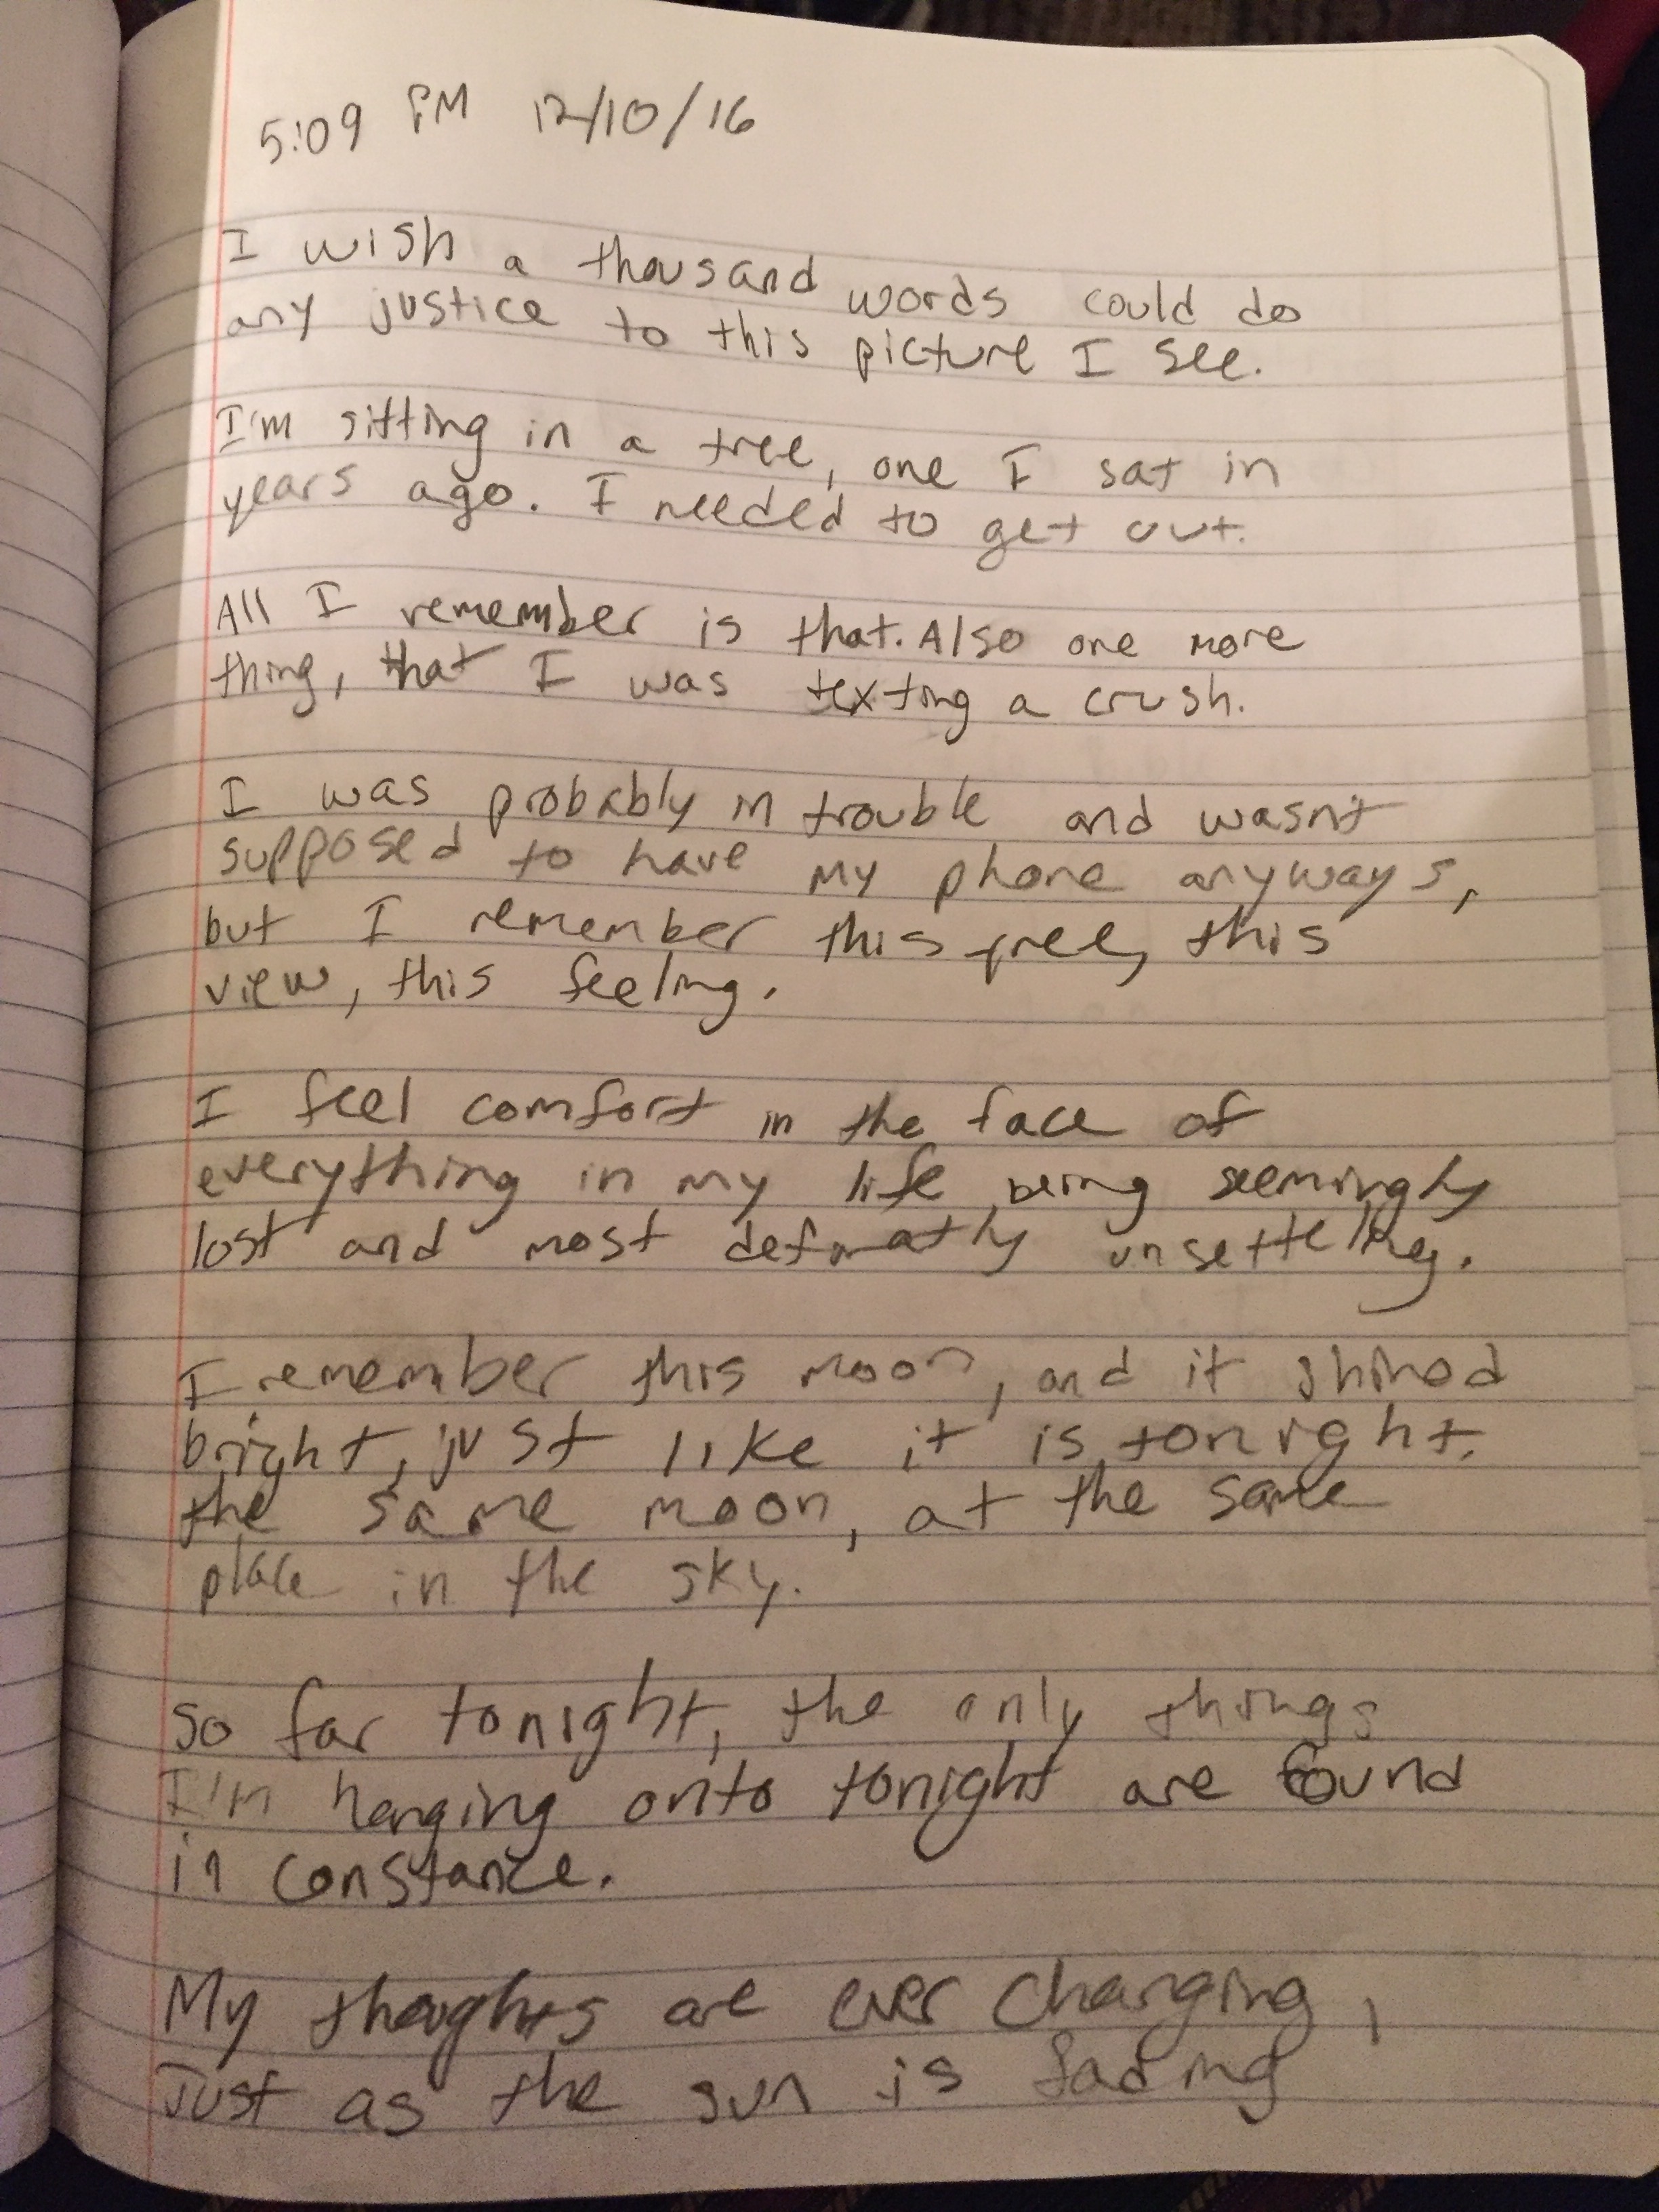 5:09 PM 12/10/16
I wish a thousand words could do
any justice to this picture I see.
I'm sitting in a tree, one I sat in
years ago. I needed to get out.
All I remember is that. Also one more
thing, that I was texting a crush.
I was probably in trouble and wasn't
supposed to have my phone anyways,
but I remember this tree, this
view, this feeling.
I feel comfort in the face of
everything in my life being seemingly
lost and most definatly unsetteling.
I remember this moon, and it shined
bright, just like it is tonight.
the same moon, at the same
place in the sky.
so far tonight, the only things
I'm hanging onto tonight are found
in constance.
My thoughts are ever changing,
Just as the sun is fading